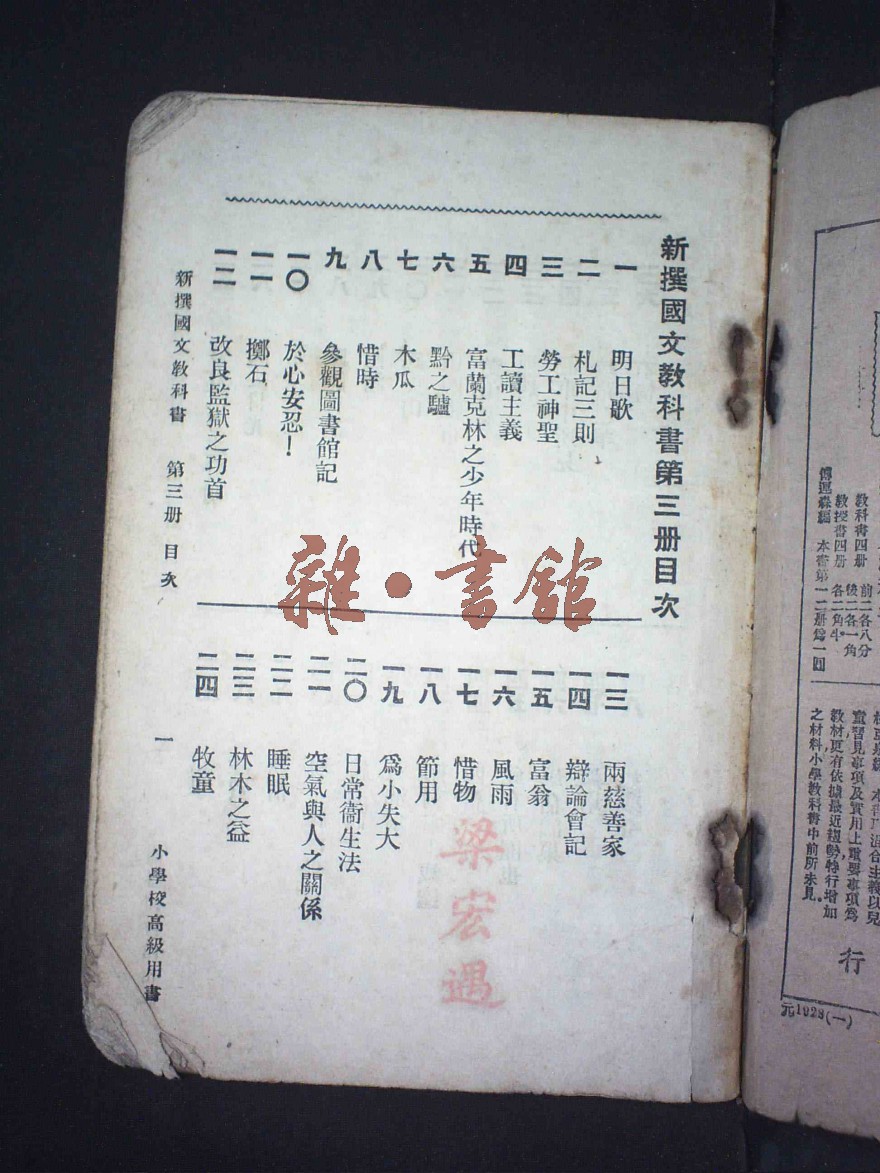 新撰國文教科書第三册目次
一 明日歌
二 札記三則
三 勞工神聖
四 工讀主義
五 富蘭克林之少年時代
六 黔之驢
七 木瓜
八 惜時
九 參觀圖書館記
一〇 於心安忍！
一一 擲石
一二 改良監獄之功首
一三 兩慈善家
一四 辯論會記
一五 富翁
一六 風雨
一七 惜物
一八 節用
一九 爲小失大
二〇 日常衞生法
二一 空氣與人之關係
二二 睡眠
二三 林木之益
二四 牧童
新撰國文教科書 第三册 目次 一 小學校高級用書
雜·書館
梁宏遇
教科書四册 前二各八分 後二各一角
教授書四册 各二角半
本書第一二册爲一回
童習見事項及實用上重要事項爲
教材更有依據最近趨勢特行增加
之材料小學教科書中前所未見。
行
元1928(一)